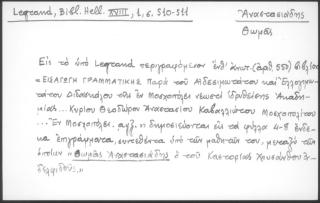 Legrand, Bibl. Hell. XVIII, 1, σ. 510-511
Ἀναστασιάδης
Θωμᾶς
Εἰς τὸ ὑπὸ Legrand περιγραφόμενον ὑπ' (ἀριθ. 553) βιβλίον
«ΕΙΣΑΓΩΓΗ ΓΡΑΜΜΑΤΙΚΗΣ παρὰ τοῦ Αἰδεσιμωτάτου καὶ Ἐλλογιμω-
τάτου Διδασκάλου τῆς ἐν Μοσχοπόλει νεωστὶ ἱδρυθείσης Ἀκαδη-
μίας... Κυρίου Θεοδώρου Ἀναστασίου Καβαλλιώτου Μοσχοπολίτου
... Ἐν Μοσχοπόλει, δημοσιεύονται εἰς τὰ φύλλα 4-8 ἕνδε-
κα ἐπιγράμματα, συντεθέντα ὑπὸ τῶν μαθητῶν του, μεταξὺ τῶν
ὁποίων «Θωμᾶς Ἀναστασιάδης ὁ τοῦ Καστορίας Χρυσάνθου ἀ-
δελφιδοῦς»